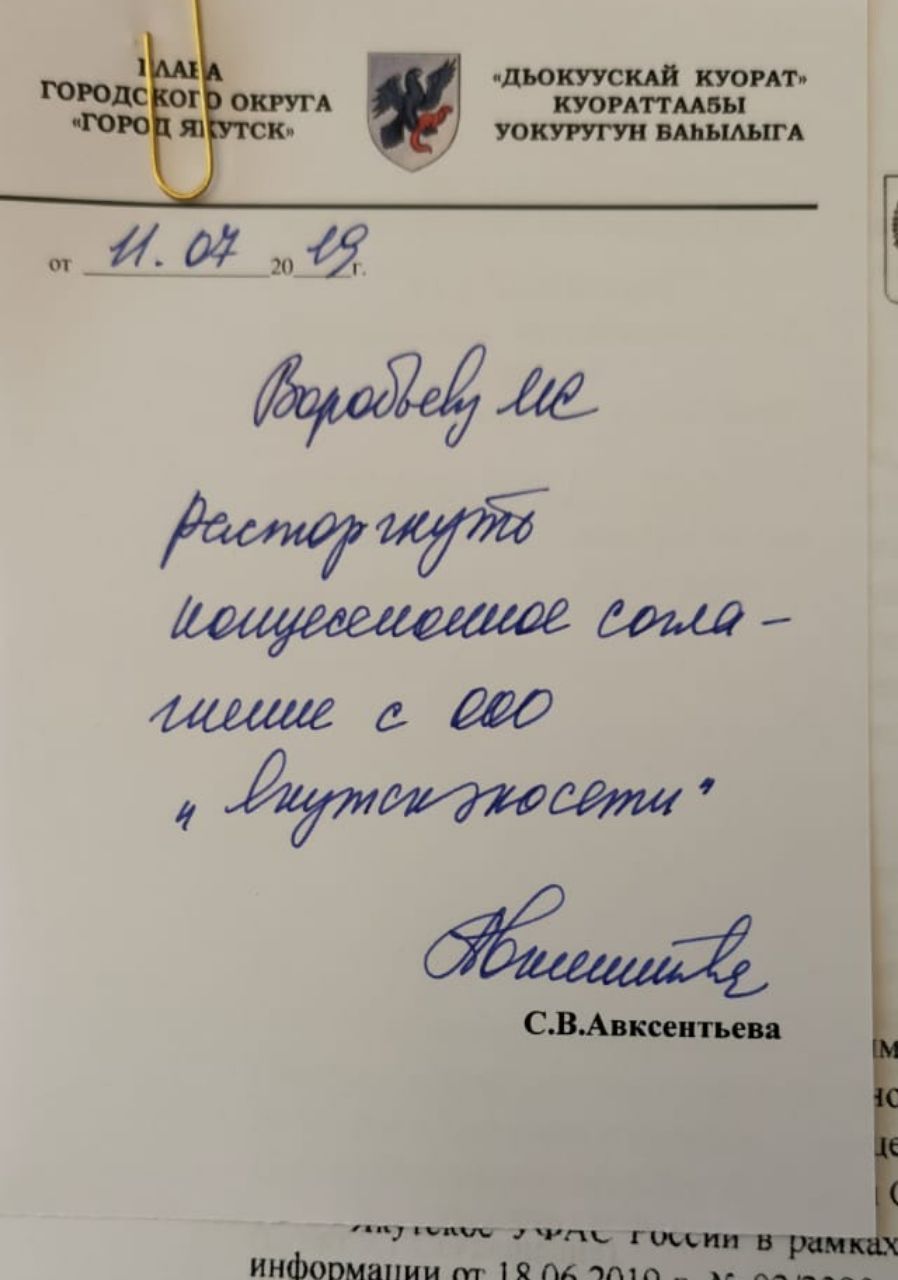 ГЛАВА
ГОРОДСКОГО ОКРУГА
«ГОРОД ЯКУТСК»
«ДЬОКУУСКАЙ КУОРАТ»
КУОРАТТААҔЫ
УОКУРУГУН БАҺЫЛЫГА
от 11.07 2019 г.
Воробьеву МС
расторгнуть
концессионное согла-
шение с ООО
„Якутскэкосети"
С.В.Авксентьева
Якутское УФАС России в рамках
информации от 18.06.2019 г. №